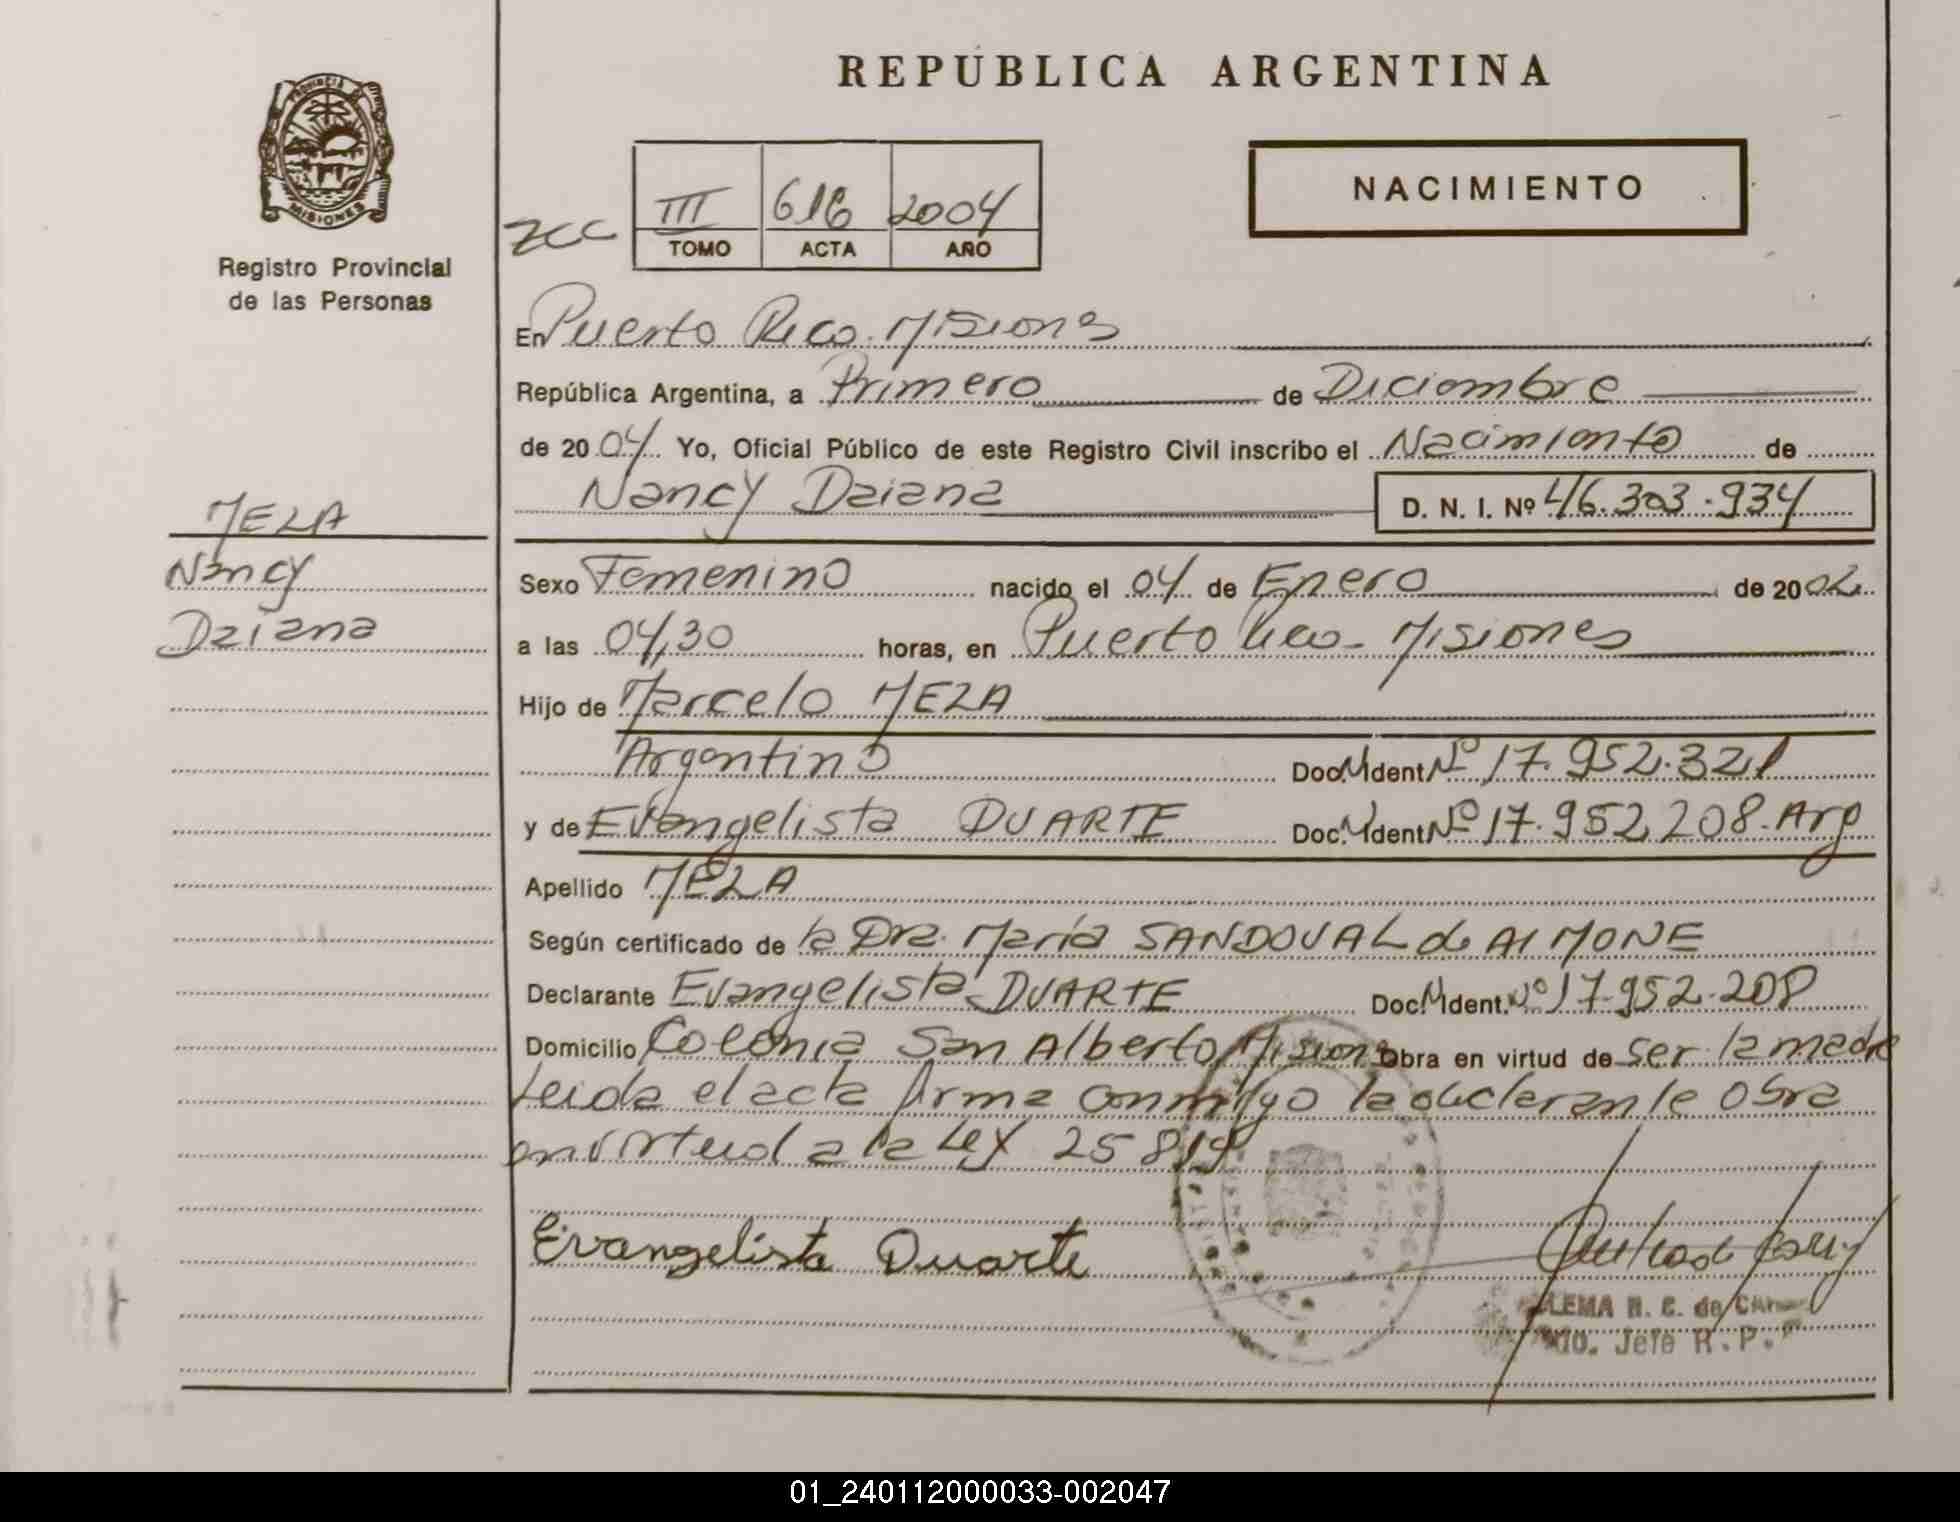 REPUBLICA ARGENTINA
PROVINCIA DE
MISIONES
Registro Provincial
de las Personas
NACIMIENTO
III 616 2004
TOMO ACTA AÑO
En Puerto Rico. Misiones
República Argentina, a Primero de Diciembre
de 2004 Yo, Oficial Público de este Registro Civil inscribo el Nacimiento de
Nancy Daiana D. N. I. Nº 46.303.934
MEZA
Nancy
Daiana
Sexo Femenino nacido el 04 de Enero de 2002
a las 04,30 horas, en Puerto Rico - Misiones
Hijo de Marcelo MEZA
Argentino Doc. M Ident Nº 17.952.321
y de Evangelista DUARTE Doc. M Ident Nº 17.952.208. Arg
Apellido MEZA
Según certificado de la Dra. María SANDOVAL de AIMONE
Declarante Evangelista DUARTE Doc. M Ident. Nº 17.952.208
Domicilio Colonia San Alberto, Misiones Obra en virtud de ser la madre
Leida el acta firma conmigo la declarante Obra
en virtud a la Ley 25819
Evangelista Duarte
LEMA R. C. de
Jefe R. P.
01_240112000033-002047